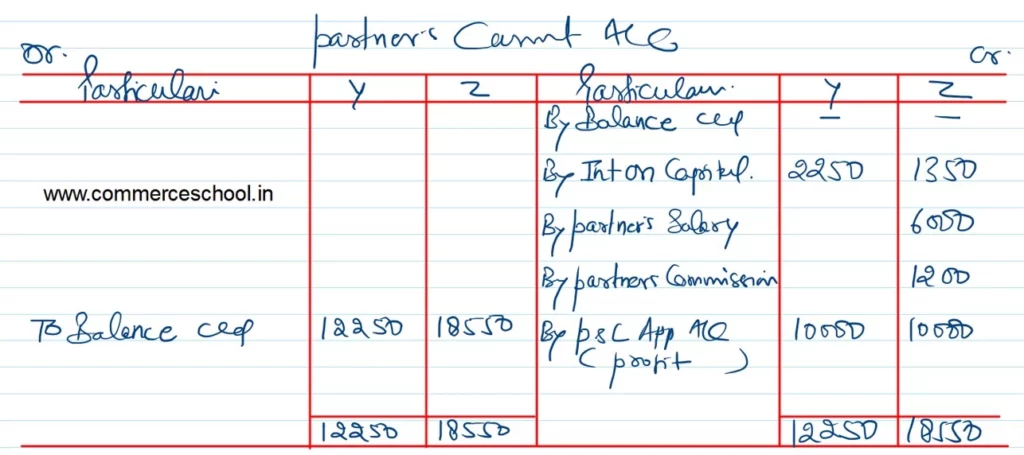 Partner's Current A/C
Dr. Cr.
Particulars Y Z Particulars Y Z
By Balance c/d — —
By Int on Capital. 2250 1350
www.commerceschool.in
By partner's Salary 6000
By partners Commission 1200
To Balance c/d 12250 18550 By P&L App A/C 10000 10000
(profit)
12250 18550 12250 18550